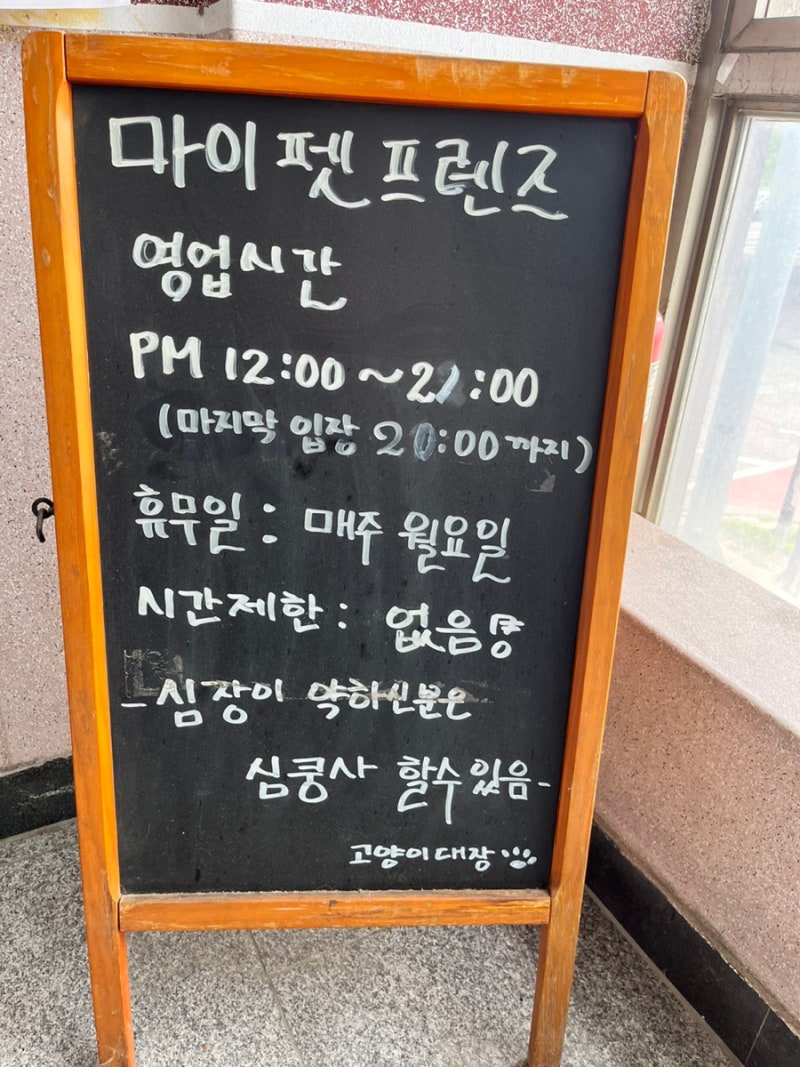 마이펫프렌즈
영업시간
PM 12:00 ~ 21:00
(마지막 입장 20:00 까지)
휴무일 : 매주 월요일
시간제한 : 없음
- 심장이 약하신분은
심쿵사 할수있음 -
고양이대장